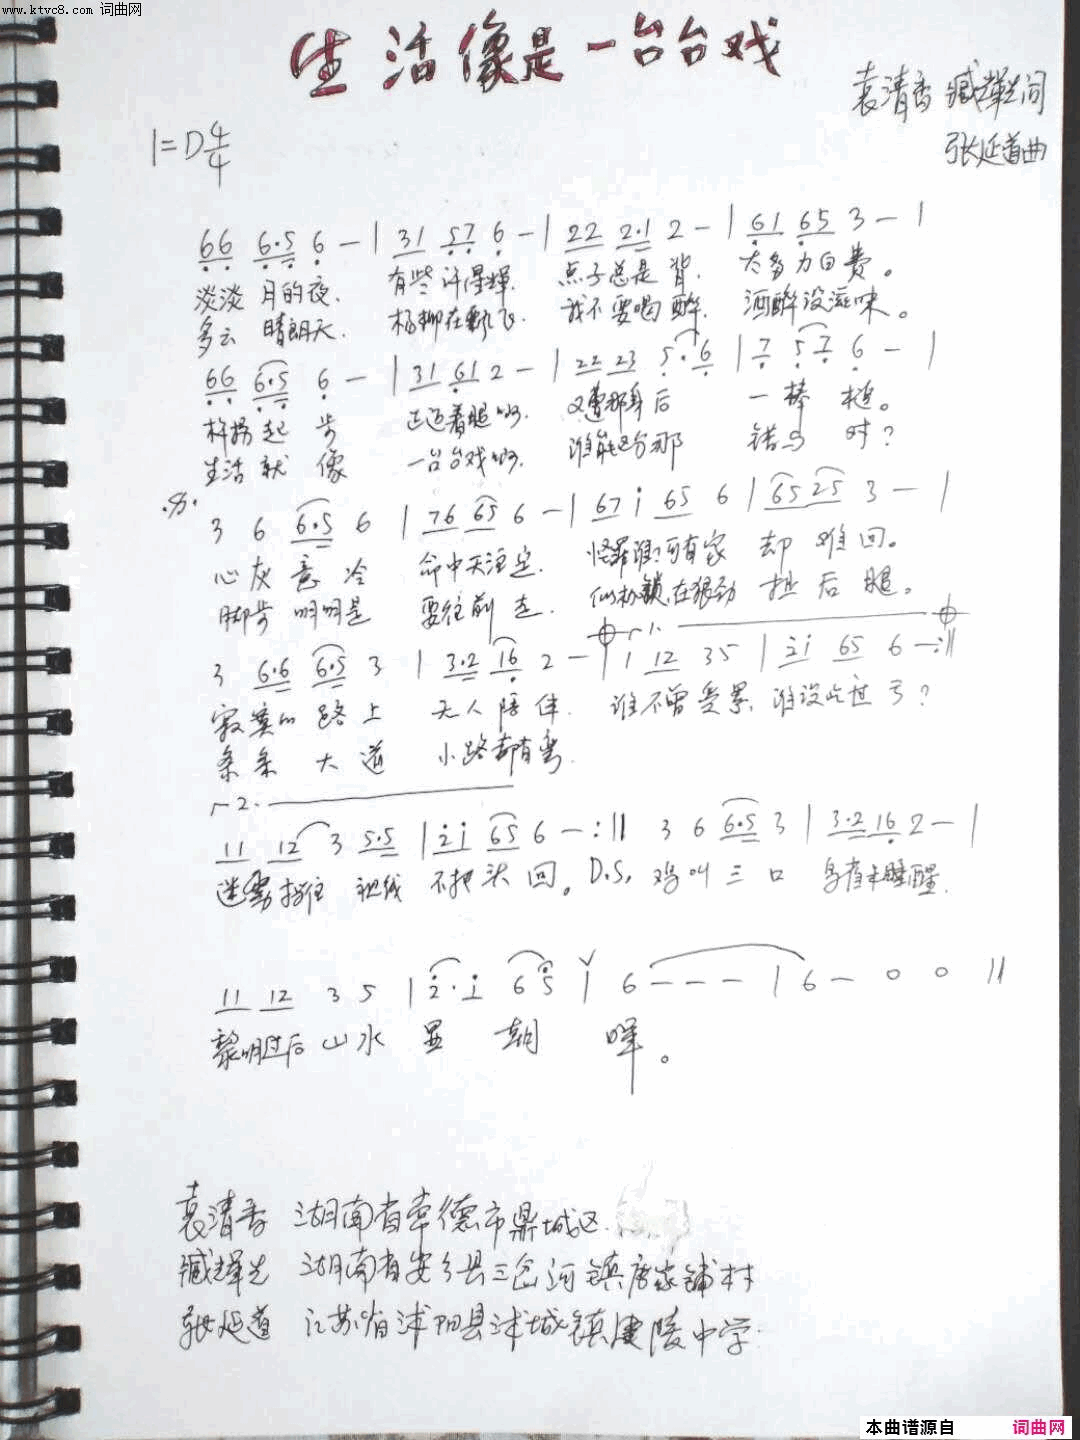 www.ktvc8.com 词曲网
生活像是一台台戏
袁清香 臧辉先词
张延道曲
1=D 4/4
66 6·5 6 - | 31 57 6 - | 22 2·1 2 - | 61 65 3 - |
淡淡 月的夜. 有些许得辉. 点子总是背. 大多力白费。
多云 晴朗天. 杨柳在飘飞. 我不要喝醉. 酒醉没滋味。
66 6·5 6 - | 31 61 2 - | 22 23 5·6 | 7 57 6 - |
拐起 步 正迈着腿 又遭那身后 一棒 槌。
生活就 像 一台台戏 谁能区分那 错与 时？
3 6 6·5 6 | 76 65 6 - | 67 i 65 6 | 65 25 3 - |
心灰意冷 命中天注定. 怪罪谁 有家 却 难回。
脚步 明明是 要往前走. 似枷锁在狠劲 扯后腿。
1.
3 6·6 6·5 3 | 3·2 16 2 - | 1 12 35 | 2i 65 6 - :||
寂寞的路上 无人陪伴. 谁不曾受累. 谁没吃过亏？
条条大道 小路却有弯.
2.
11 12 3 5·5 | 2i 65 6 - :|| 3 6 6·5 3 | 3·2 16 2 - |
迷雾挡住 视线 不把头回。D.S. 鸡叫三口 睡醒.
11 12 3 5 | 2·i 65 | 6 - - - | 6 - 0 0 ||
黎明过后山水 显 朝 晖。
袁清香 湖南省常德市鼎城区.
臧辉先 湖南省安乡县三岔河镇唐家铺村
张延道 江苏省沭阳县沭城镇建陵中学.
本曲谱源自 词曲网